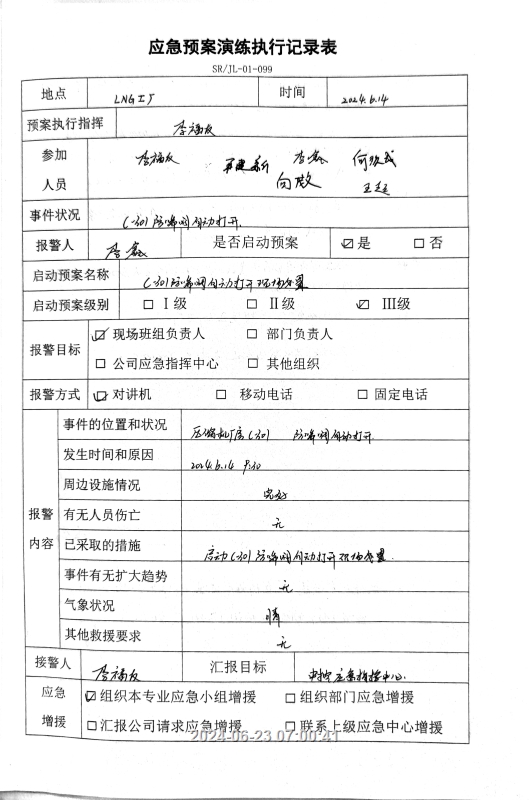 应急预案演练执行记录表
SR/JL-01-099
地点 LNG工厂 时间 2024.6.14
预案执行指挥 李福友
参加 李福友 李鑫
人员 向殿 王超
事件状况 C-301防喘阀自动打开.
报警人 李鑫 是否启动预案 ☑是 □否
启动预案名称 C-301防喘阀自动打开现场处置
启动预案级别 □Ⅰ级 □Ⅱ级 ☑Ⅲ级
报警目标 ☑现场班组负责人 □部门负责人
□公司应急指挥中心 □其他组织
报警方式 ☑对讲机 □移动电话 □固定电话
报警内容
事件的位置和状况 压缩机厂房C-301 防喘阀自动打开.
发生时间和原因 2024.6.14 9:30
周边设施情况 完好
有无人员伤亡 无
已采取的措施 启动C-301防喘阀自动打开现场处置.
事件有无扩大趋势 无
气象状况 晴
其他救援要求 无
接警人 李福友 汇报目标 中控应急指挥中心.
应急增援 ☑组织本专业应急小组增援 □组织部门应急增援
□汇报公司请求应急增援 □联系上级应急中心增援
2024-06-23 07:00:41